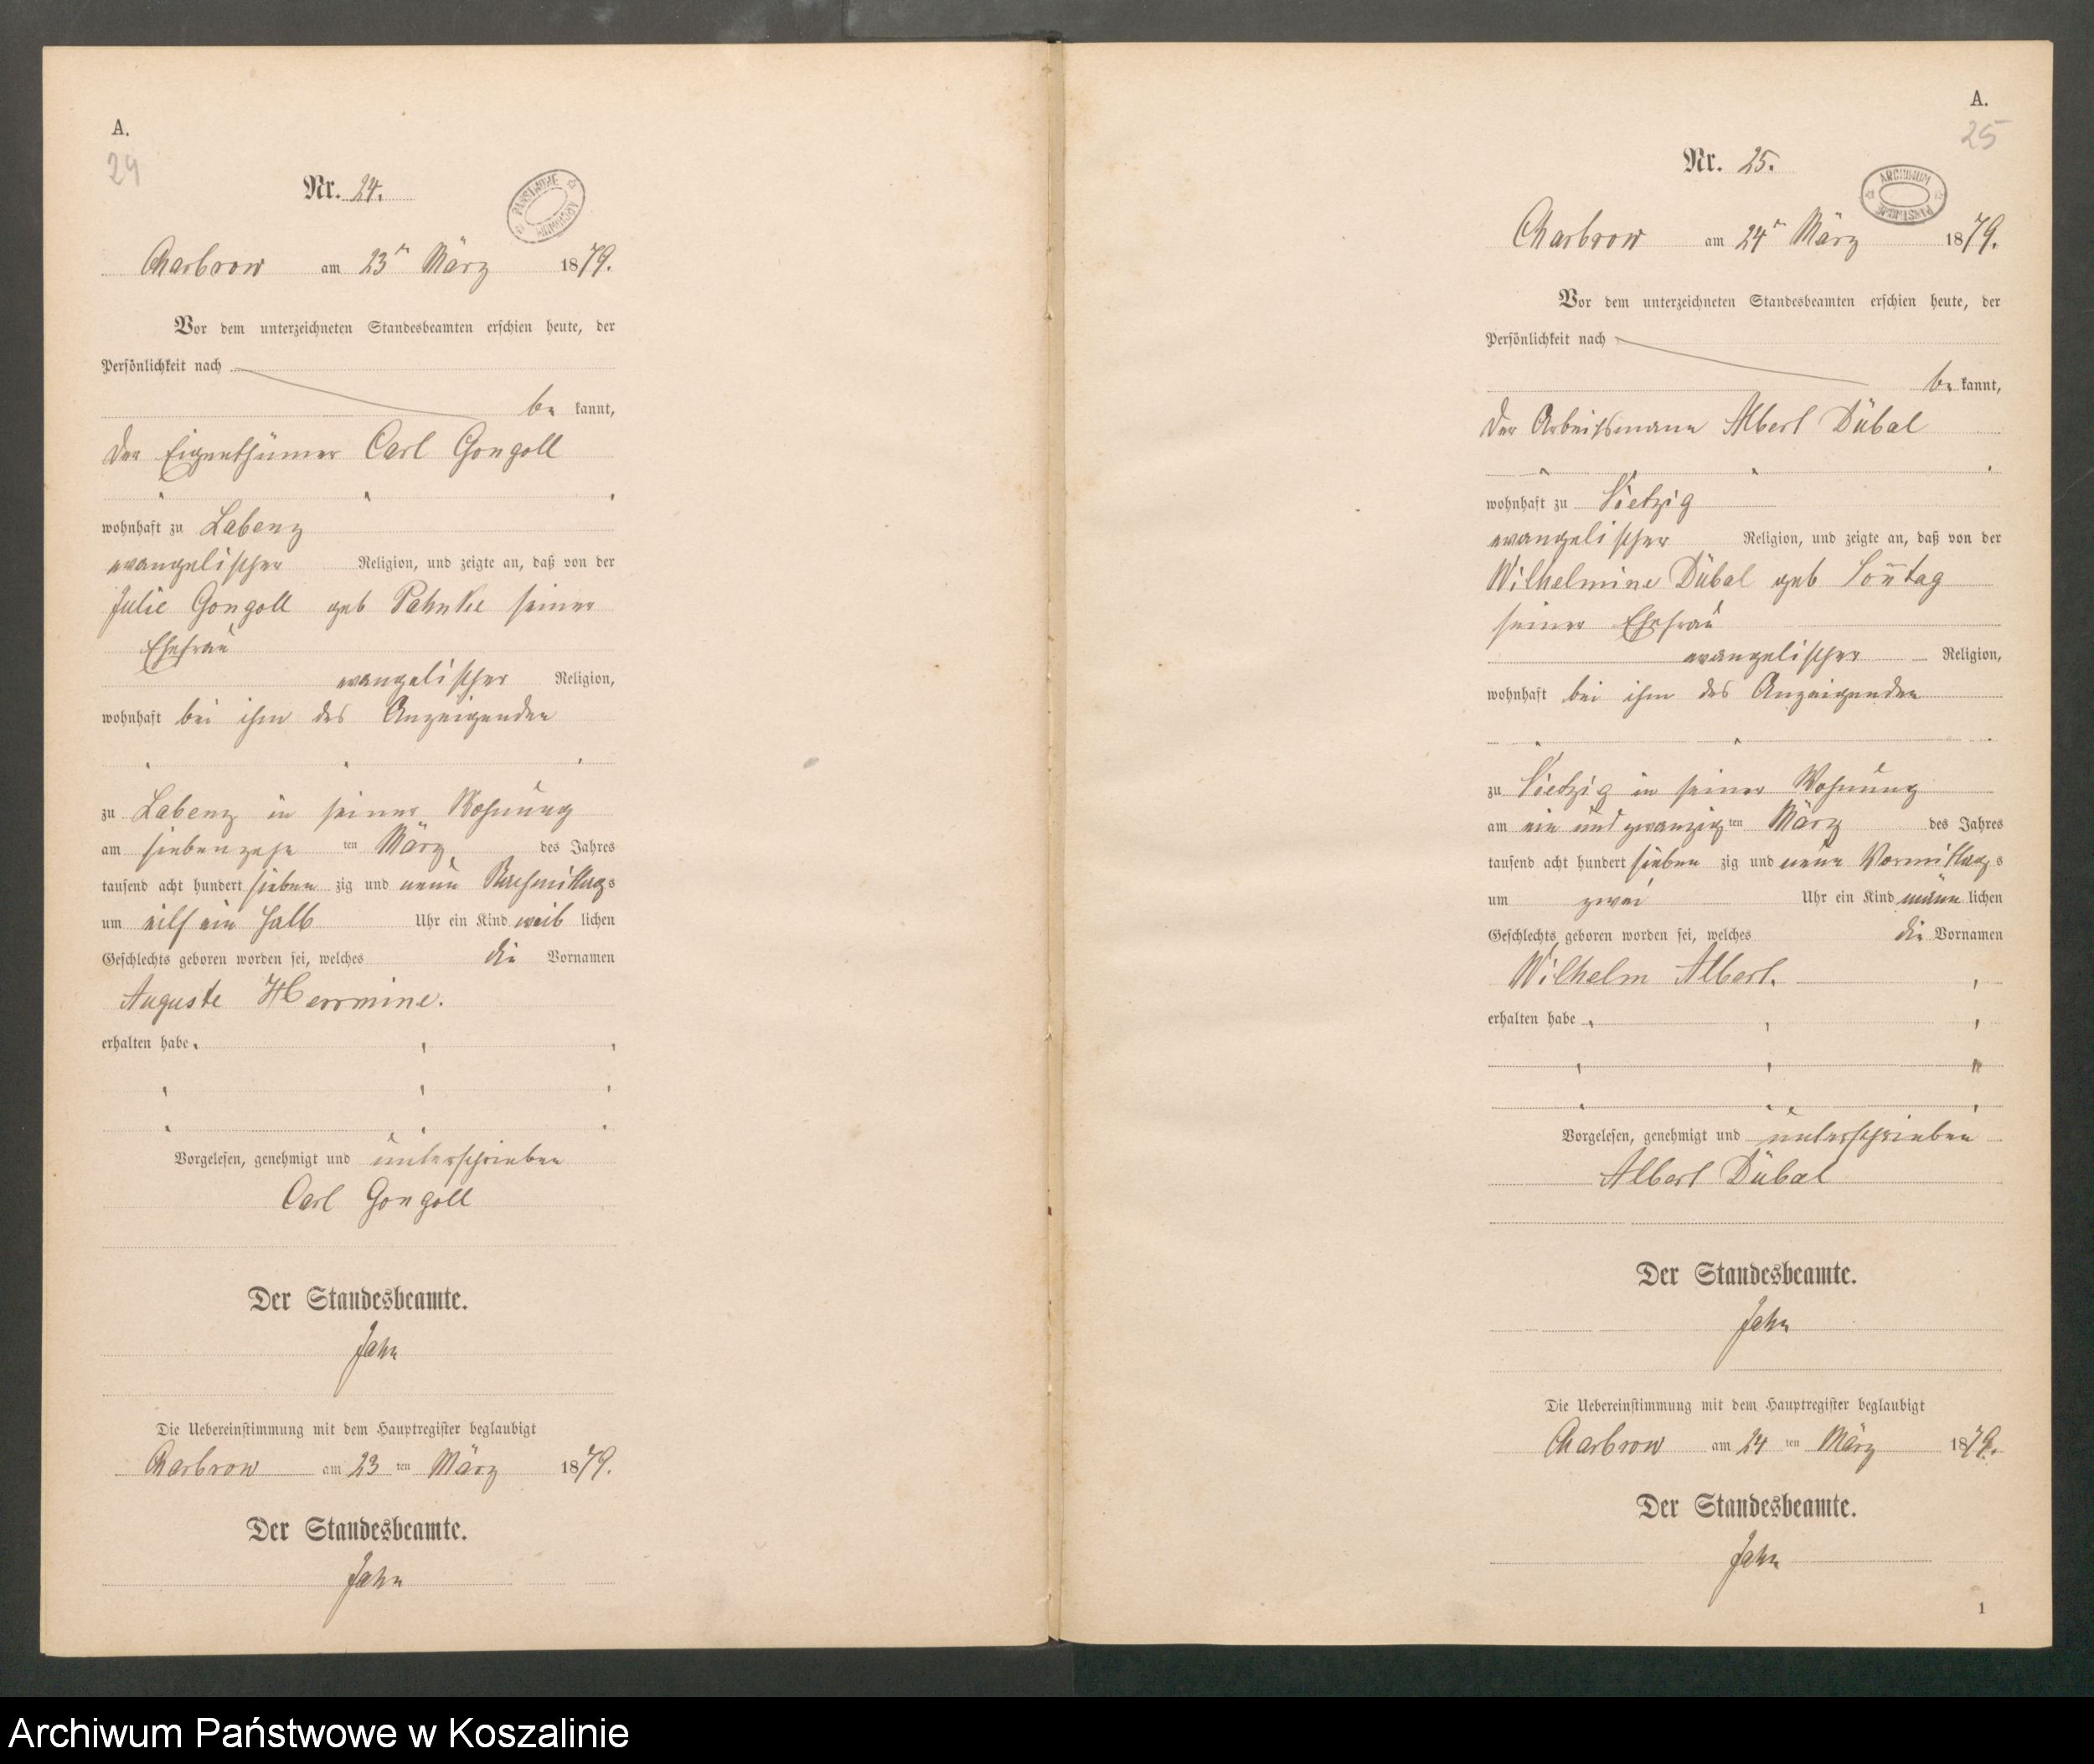 A.
24
Nr. 24.
PAŃSTWOWE ARCHIWUM
Charbrow am 23ten März 1879.
Vor dem unterzeichneten Standesbeamten erschien heute, der
Persönlichkeit nach
be kannt,
der Eigenthümer Carl Gongoll
wohnhaft zu Labenz
evangelischer Religion, und zeigte an, daß von der
Julie Gongoll geb Pahnke seiner
Ehefrau
evangelischer Religion,
wohnhaft bei ihm des Anzeigenden
zu Labenz in seiner Wohnung
am siebenzehn ten März des Jahres
tausend acht hundert sieben zig und neun Nachmittags
um eilf ein halb Uhr ein Kind weib lichen
Geschlechts geboren worden sei, welches die Vornamen
Auguste Herrmine.
erhalten habe
Vorgelesen, genehmigt und unterschrieben
Carl Gongoll
Der Standesbeamte.
Jahn
Die Uebereinstimmung mit dem Hauptregister beglaubigt
Charbrow am 23 ten März 1879.
Der Standesbeamte.
Jahn
A.
25
Nr. 25.
ARCHIWUM PAŃSTWOWE
Charbrow am 24ten März 1879.
Vor dem unterzeichneten Standesbeamten erschien heute, der
Persönlichkeit nach
be kannt,
der Arbeitsmann Albert Dübal
wohnhaft zu Vietzig
evangelischer Religion, und zeigte an, daß von der
Wilhelmine Dübal geb Son̄tag
seiner Ehefrau
evangelischer Religion,
wohnhaft bei ihm des Anzeigenden
zu Vietzig in seiner Wohnung
am ein und zwanzig ten März des Jahres
tausend acht hundert sieben zig und neun Vormittags
um zwei Uhr ein Kind männ lichen
Geschlechts geboren worden sei, welches die Vornamen
Wilhelm Albert.
erhalten habe
Vorgelesen, genehmigt und unterschrieben
Albert Dübal
Der Standesbeamte.
Jahn
Die Uebereinstimmung mit dem Hauptregister beglaubigt
Charbrow am 24 ten März 1879.
Der Standesbeamte.
Jahn
1
Archiwum Państwowe w Koszalinie